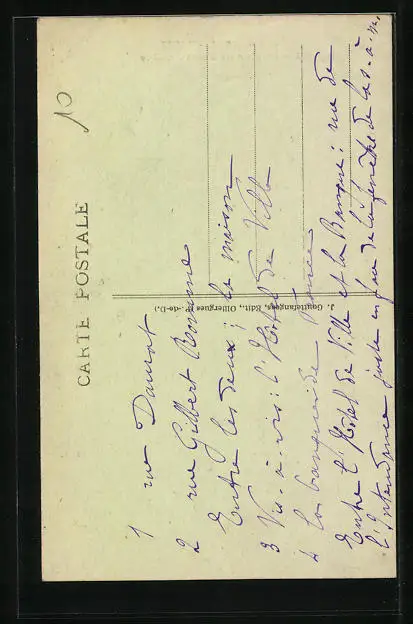 10
CARTE POSTALE
J. Goutefangeas, Edit., Olliergues (P.-de-D.)
1 rue Daurat
2 rue Gilbert Romme
Entre les deux : la maison
3 Vis-à-vis : l'Hôtel de Ville
4 la banque de France
Entre l'Hôtel de Ville et la Banque : rue de
l'Intendance juste en face de la fenêtre de la s. à m.